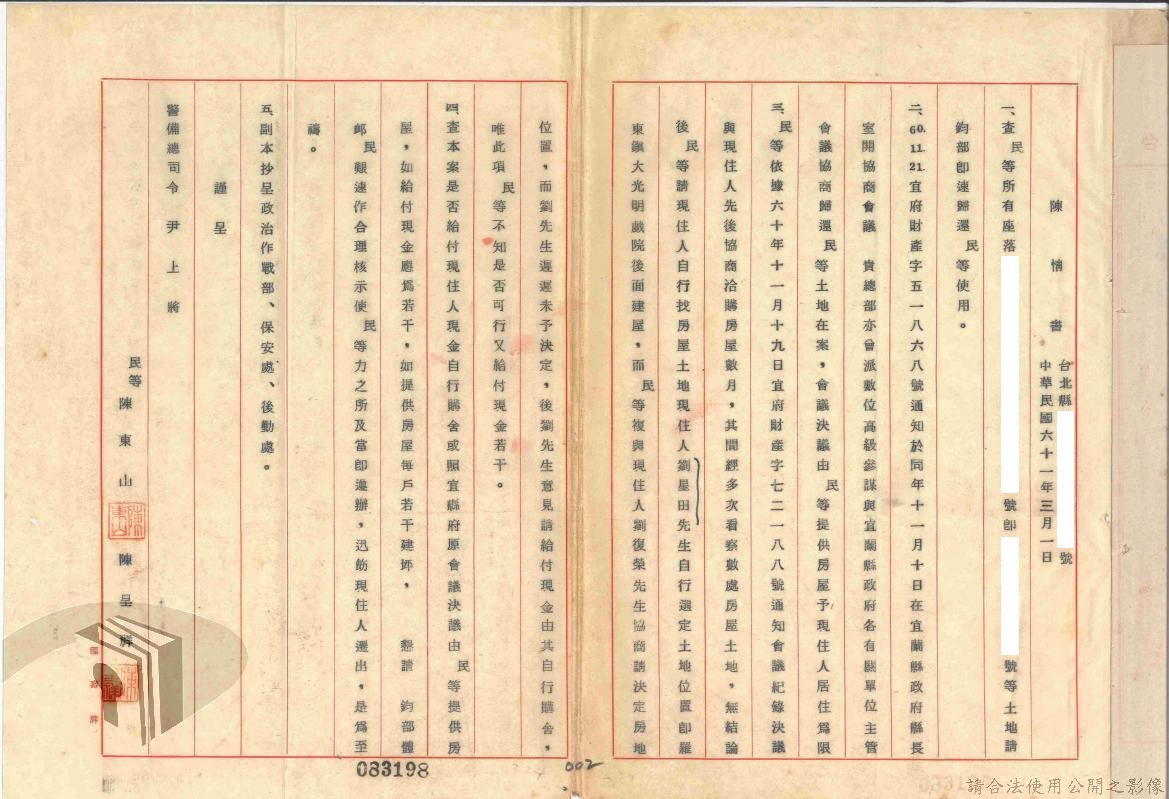 陳情書
台北縣 號
中華民國六十一年三月一日
一、查民等所有座落 號卽 號等土地請
鈞部卽速歸還民等使用。
二、60.11.21.宜府財產字五一八六八號通知於同年十一月十日在宜蘭縣政府縣長
室開協商會議 貴總部亦曾派數位高級參謀與宜蘭縣政府各有關單位主管
會議協商歸還民等土地在案，會議決議由民等提供房屋予現住人居住為限
三、民等依據六十年十一月十九日宜府財產字七二一八八號通知會議紀錄決議
與現住人先後協商洽購房屋數月，其間經多次看察數處房屋土地，無結論
後民等請現住人自行找房屋土地現住人劉星田先生自行選定土地位置卽羅
東鎭大光明戲院後面建屋，而民等複與現住人劉復榮先生協商請決定房地
位置，而劉先生遲遲未予決定，後劉先生意見請給付現金由其自行購舍，
唯此項民等不知是否可行又給付現金若干。
四、查本案是否給付現住人現金自行購舍或照宜縣府原會議決議由民等提供房
屋，如給付現金應爲若干，如提供房屋每戶若干建坪， 懇請 鈞部體
卹民艱速作合理核示使民等力之所及當卽遵辦，迅飭現住人遷出，是爲至
禱。
五、副本抄呈政治作戰部、保安處、後勤處。
謹呈
警備總司令尹上將
民等陳東山 陳呈
083198
002
請合法使用公開之影像